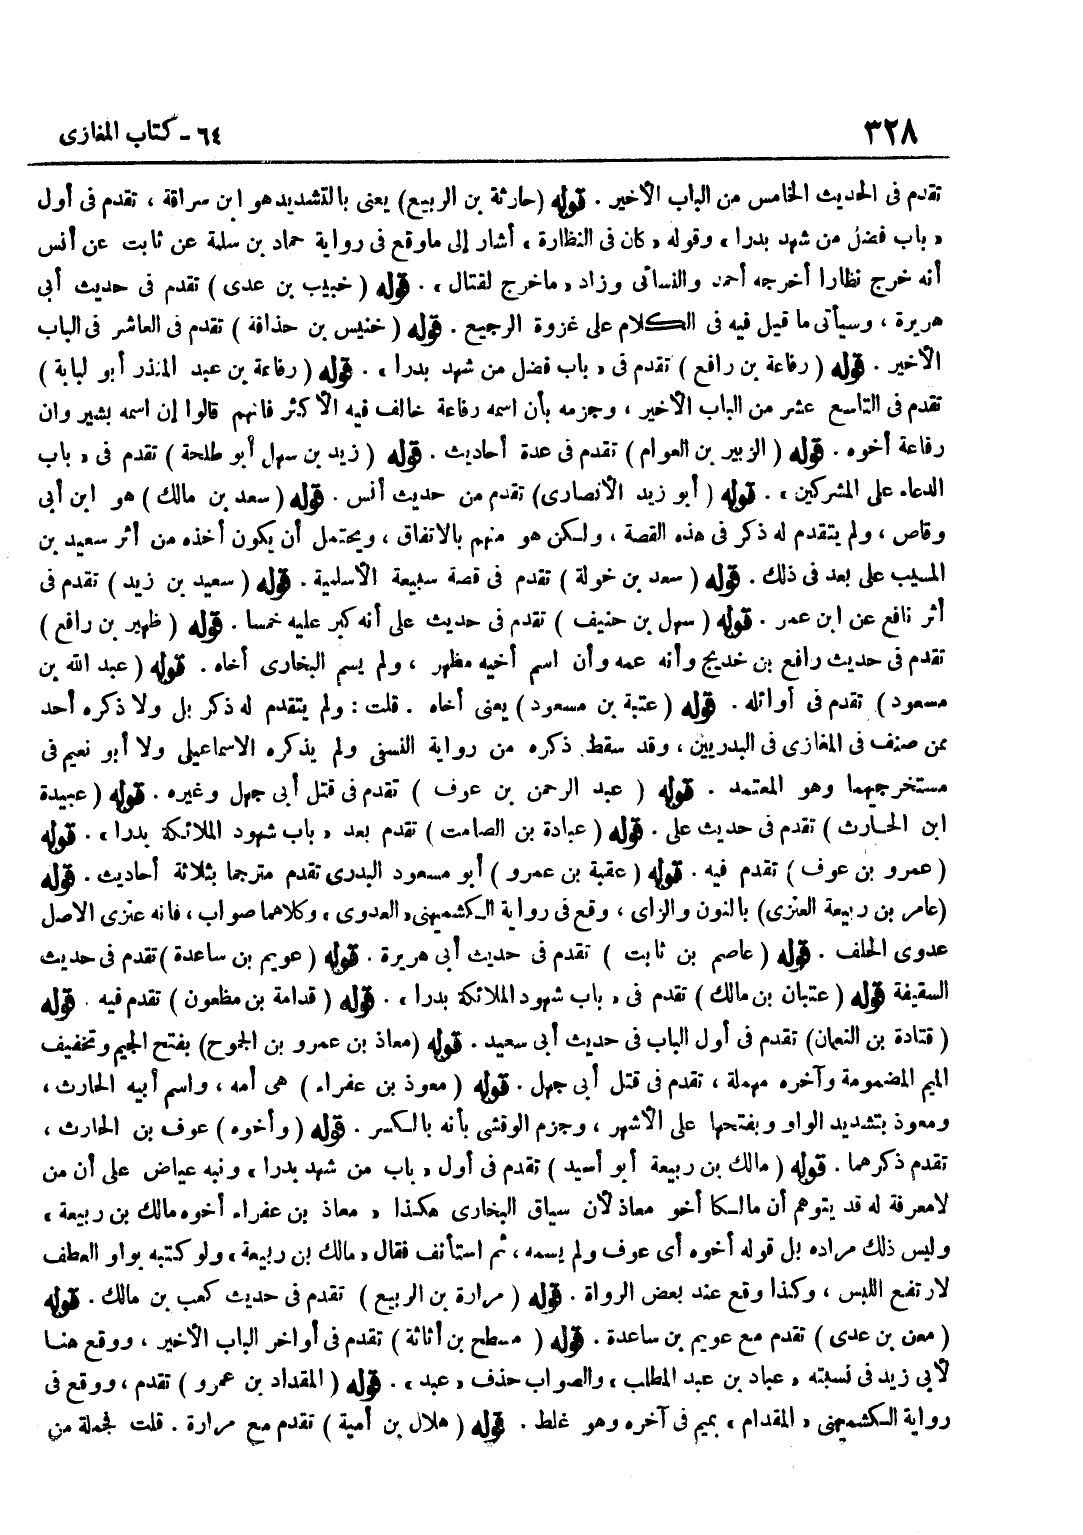 ٣٢٨
٦٤ - كتاب المغازى
تقدم فى الحديث الخامس من الباب الأخير . قوله (حارثة بن الربيع) يعنى بالتشديد هو ابن سراقة ، تقدم فى أول
« باب فضل من شهد بدرا » وقوله « كان فى النظارة » أشار إلى ماوقع فى رواية حماد بن سلمة عن ثابت عن أنس
أنه خرج نظارا أخرجه أحمد والنسائى وزاد « ماخرج لقتال » . قوله ( خبيب بن عدى ) تقدم فى حديث أبى
هريرة ، وسيأتى ما قيل فيه فى الكلام على غزوة الرجيع . قوله ( خنيس بن حذافة ) تقدم فى العاشر فى الباب
الأخير . قوله ( رفاعة بن رافع ) تقدم فى « باب فضل من شهد بدرا » . قوله ( رفاعة بن عبد المنذر أبو لبابة )
تقدم فى التاسع عشر من الباب الأخير ، وجزمه بأن اسمه رفاعة خالف فيه الأكثر فانهم قالوا إن اسمه بشير وان
رفاعة أخوه . قوله ( الزبير بن العوام ) تقدم فى عدة أحاديث . قوله ( زيد بن سهل أبو طلحة ) تقدم فى « باب
الدعاء على المشركين » . قوله ( أبو زيد الأنصارى) تقدم من حديث أنس . قوله ( سعد بن مالك ) هو ابن أبى
وقاص ، ولم يتقدم له ذكر فى هذه القصة ، ولكن هو منهم بالاتفاق ، ويحتمل أن يكون أخذه من أثر سعيد بن
المسيب على بعد فى ذلك . قوله ( سعد بن خولة ) تقدم فى قصة سبيعة الأسلمية . قوله ( سعيد بن زيد ) تقدم فى
أثر نافع عن ابن عمر . قوله ( سهل بن حنيف ) تقدم فى حديث على أنه كبر عليه خمسا . قوله ( ظهير بن رافع )
تقدم فى حديث رافع بن خديج وأنه عمه وأن اسم أخيه مظهر ، ولم يسم البخارى أخاه . قوله ( عبد الله بن
مسعود ) تقدم فى أوائله . قوله ( عتبة بن مسعود ) يعنى أخاه . قلت : ولم يتقدم له ذكر بل ولا ذكره أحد
ممن صنف فى المغازى فى البدريين ، وقد سقط ذكره من رواية النسفى ولم يذكره الاسماعيلى ولا أبو نعيم فى
مستخرجيهما وهو المعتمد . قوله ( عبد الرحمن بن عوف ) تقدم فى قتل أبى جهل وغيره . قوله ( عبيدة
ابن الحارث ) تقدم فى حديث على . قوله ( عبادة بن الصامت ) تقدم بعد « باب شهود الملائكة بدرا » . قوله
( عمرو بن عوف ) تقدم فيه . قوله ( عقبة بن عمرو ) أبو مسعود البدرى تقدم مترجما بثلاثة أحاديث . قوله
(عامر بن ربيعة العنزى) بالنون والزاى ، وقع فى رواية الكشميهنى « العدوى » وكلاهما صواب ، فانه عنزى الاصل
عدوى الحلف . قوله ( عاصم بن ثابت ) تقدم فى حديث أبى هريرة . قوله ( عويم بن ساعدة ) تقدم فى حديث
السقيفة قوله ( عتبان بن مالك ) تقدم فى « باب شهود الملائكة بدرا » . قوله ( قدامة بن مظعون ) تقدم فيه . قوله
( قتادة بن النعمان) تقدم فى أول الباب فى حديث أبى سعيد . قوله (معاذ بن عمرو بن الجموح) بفتح الجيم وتخفيف
الميم المضمومة وآخره مهملة ، تقدم فى قتل أبى جهل . قوله ( معوذ بن عفراء ) هى أمه ، واسم أبيه الحارث ،
ومعوذ بتشديد الواو وبفتحها على الأشهر ، وجزم الوقشى بأنه بالكسر . قوله ( وأخوه ) عوف بن الحارث ،
تقدم ذكرهما . قوله ( مالك بن ربيعة أبو أسيد ) تقدم فى أول « باب من شهد بدرا » ونبه عياض على أن من
لامعرفة له قد يتوهم أن مالكا أخو معاذ لأن سياق البخارى هكذا « معاذ بن عفراء أخوه مالك بن ربيعة »
وليس ذلك مراده بل قوله أخوه أى عوف ولم يسمه ، ثم استأنف فقال « مالك بن ربيعة » ولو كتبه بواو العطف
لارتفع اللبس ، وكذا وقع عند بعض الرواة . قوله ( مرارة بن الربيع ) تقدم فى حديث كعب بن مالك . قوله
( معن بن عدى ) تقدم مع عويم بن ساعدة . قوله ( مسطح بن أثاثة ) تقدم فى أواخر الباب الأخير ، ووقع هنا
لأبى زيد فى نسبته « عباد بن عبد المطلب » والصواب حذف « عبد » . قوله ( المقداد بن عمرو ) تقدم ، ووقع فى
رواية الكشميهنى « المقدام » بميم فى آخره وهو غلط . قوله ( هلال بن أمية ) تقدم مع مرارة . قلت فجملة من